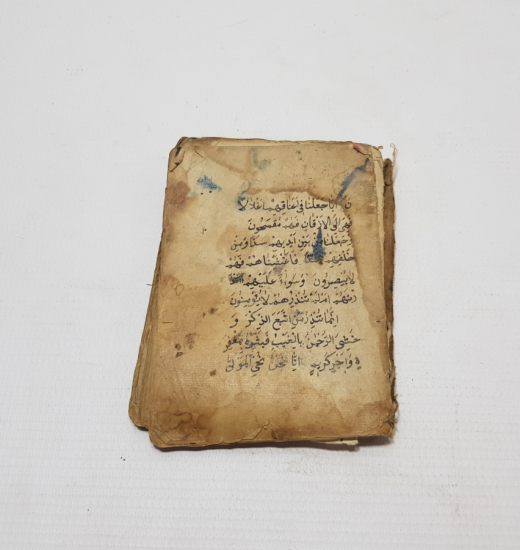 انا جعلنا في اعناقهم اغلالا
فهي الى الاذقان فهم مقمحون
وجعلنا من بين ايديهم سدا ومن
خلفهم فاغشيناهم فهم
لا يبصرون وسواء عليهم
لا يؤمنون
انما تنذر من اتبع الذكر و
خشي الرحمن بالغيب فبشره بمغفر
ة واجر كريم انا نحن نحي الموتى